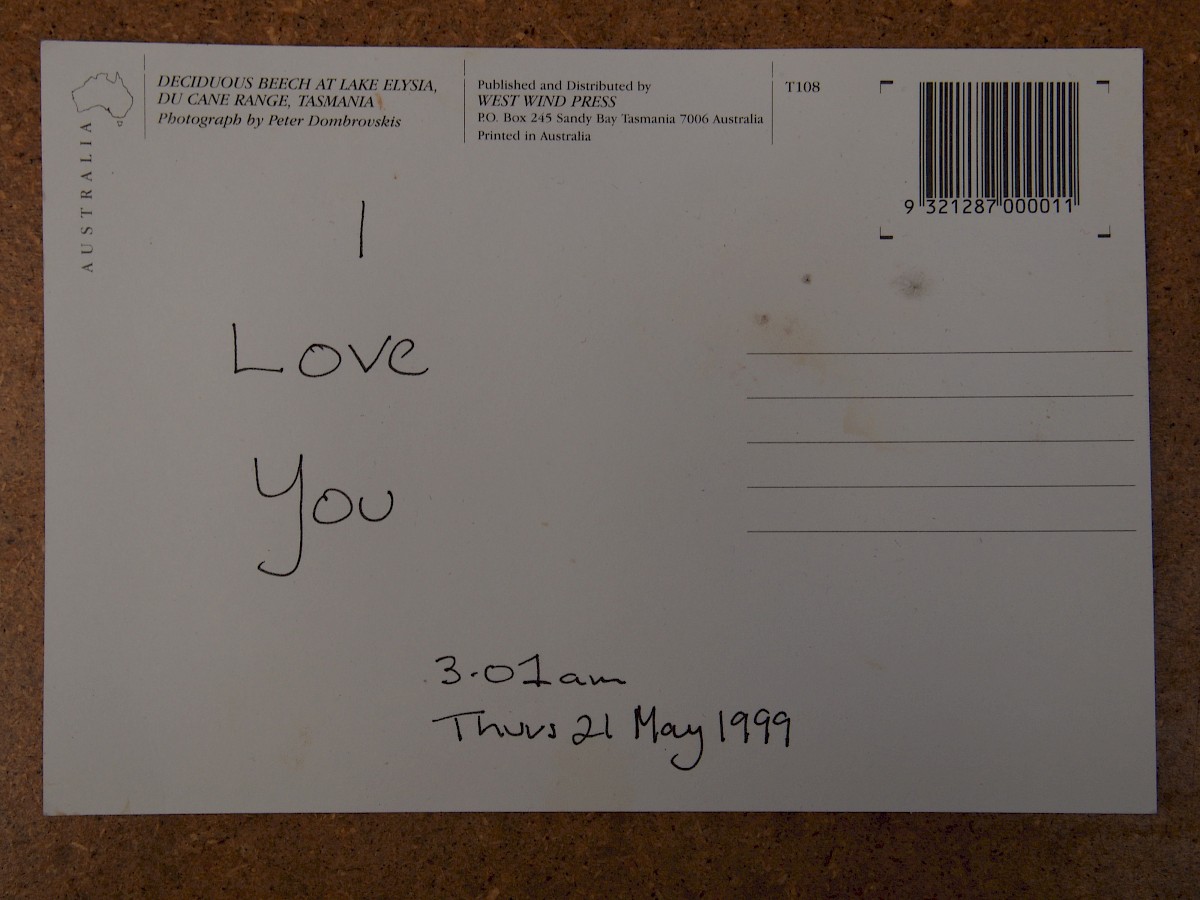 AUSTRALIA
DECIDUOUS BEECH AT LAKE ELYSIA,
DU CANE RANGE, TASMANIA
Photograph by Peter Dombrovskis
Published and Distributed by
WEST WIND PRESS
P.O. Box 245 Sandy Bay Tasmania 7006 Australia
Printed in Australia
T108
9 321287 000011
I
Love
You
3.01am
Thurs 21 May 1999